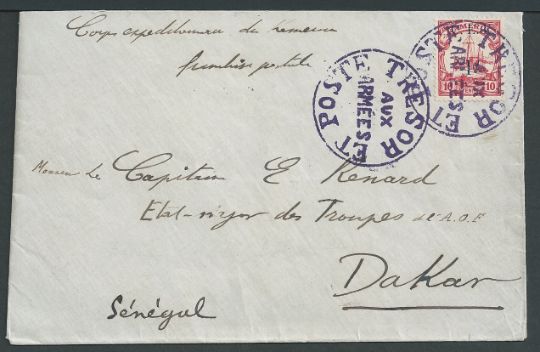 Corps expeditionnaire du Kameroun
franchise postale
KAMERUN
10 10
TRESOR ET POSTE
AUX
ARMÉES
TRESOR ET POSTE
AUX
ARMÉES
Monsieur Le Capitaine E Renard
Etat-major des Troupes de l'A.O.F
Dakar
Sénégal